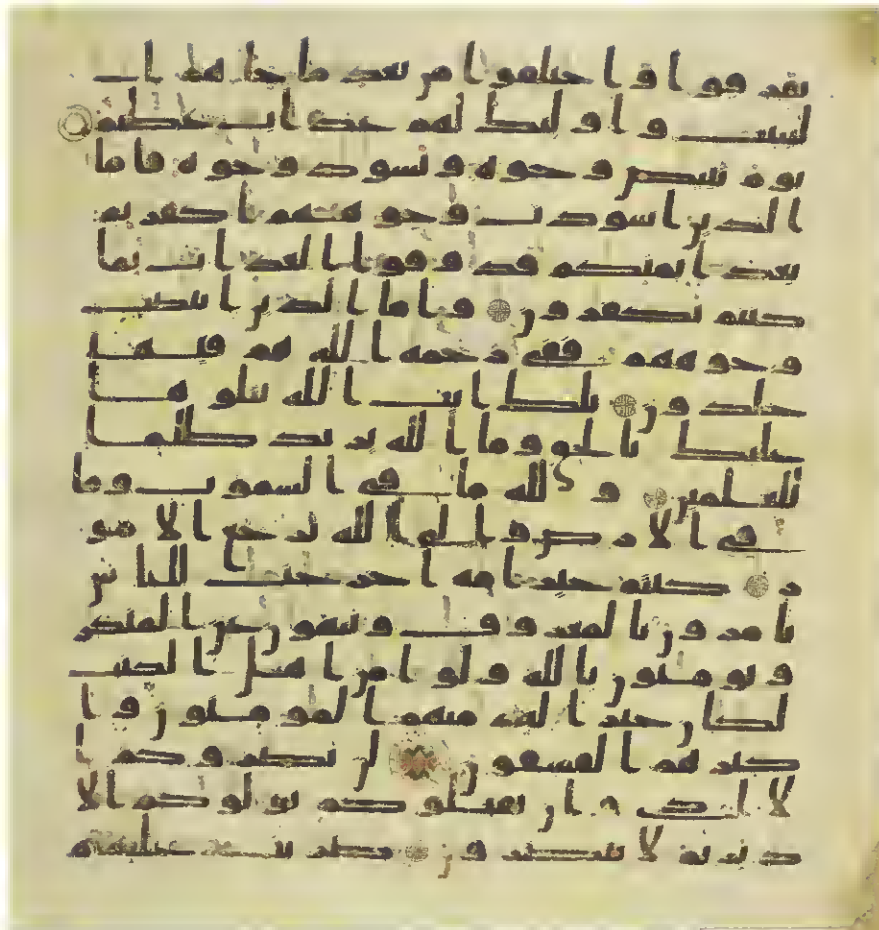 تفرقوا واختلفوا من بعد ما جاهم الب
ينت واولئك لهم عذاب عظيم
يوم تبيض وجوه وتسود وجوه فاما
الذين اسودت وجوههم اكفرتم
بعد ايمنكم فذوقوا العذاب بما
كنتم تكفرون واما الذين ابيضت
وجوههم ففي رحمه الله هم فيها
خلدون تلك ايت الله نتلوها
عليك بالحق وما الله يريد ظلما
للعلمين ولله ما في السموت وما
في الارض والى الله ترجع الامو
ر كنتم خير امه اخرجت للناس
تامرون بالمعروف وتنهون عن المنكر
وتومنون بالله ولو امن اهل الكتب
لكان خيرا لهم منهم المومنون وا
كثرهم الفسقون لن يضروكم ا
لا اذى وان يقتلوكم يولوكم الا
دبر ثم لا ينصرون ضربت عليهم